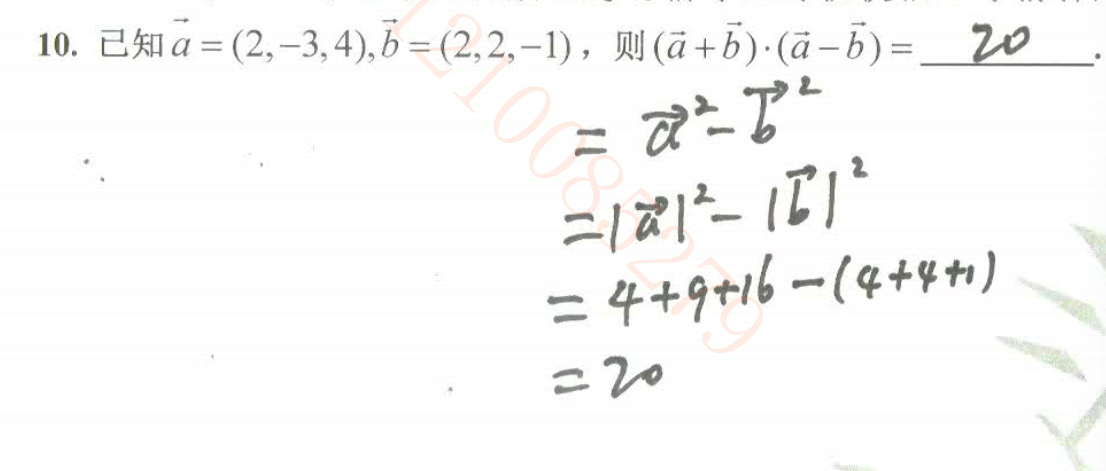 10. 已知 $\vec{a}=(2,-3,4),\vec{b}=(2,2,-1)$，则 $(\vec{a}+\vec{b})\cdot(\vec{a}-\vec{b})=$ 20 .
$= \vec{a}^2-\vec{b}^2$
$=|\vec{a}|^2-|\vec{b}|^2$
$=4+9+16-(4+4+1)$
$=20$